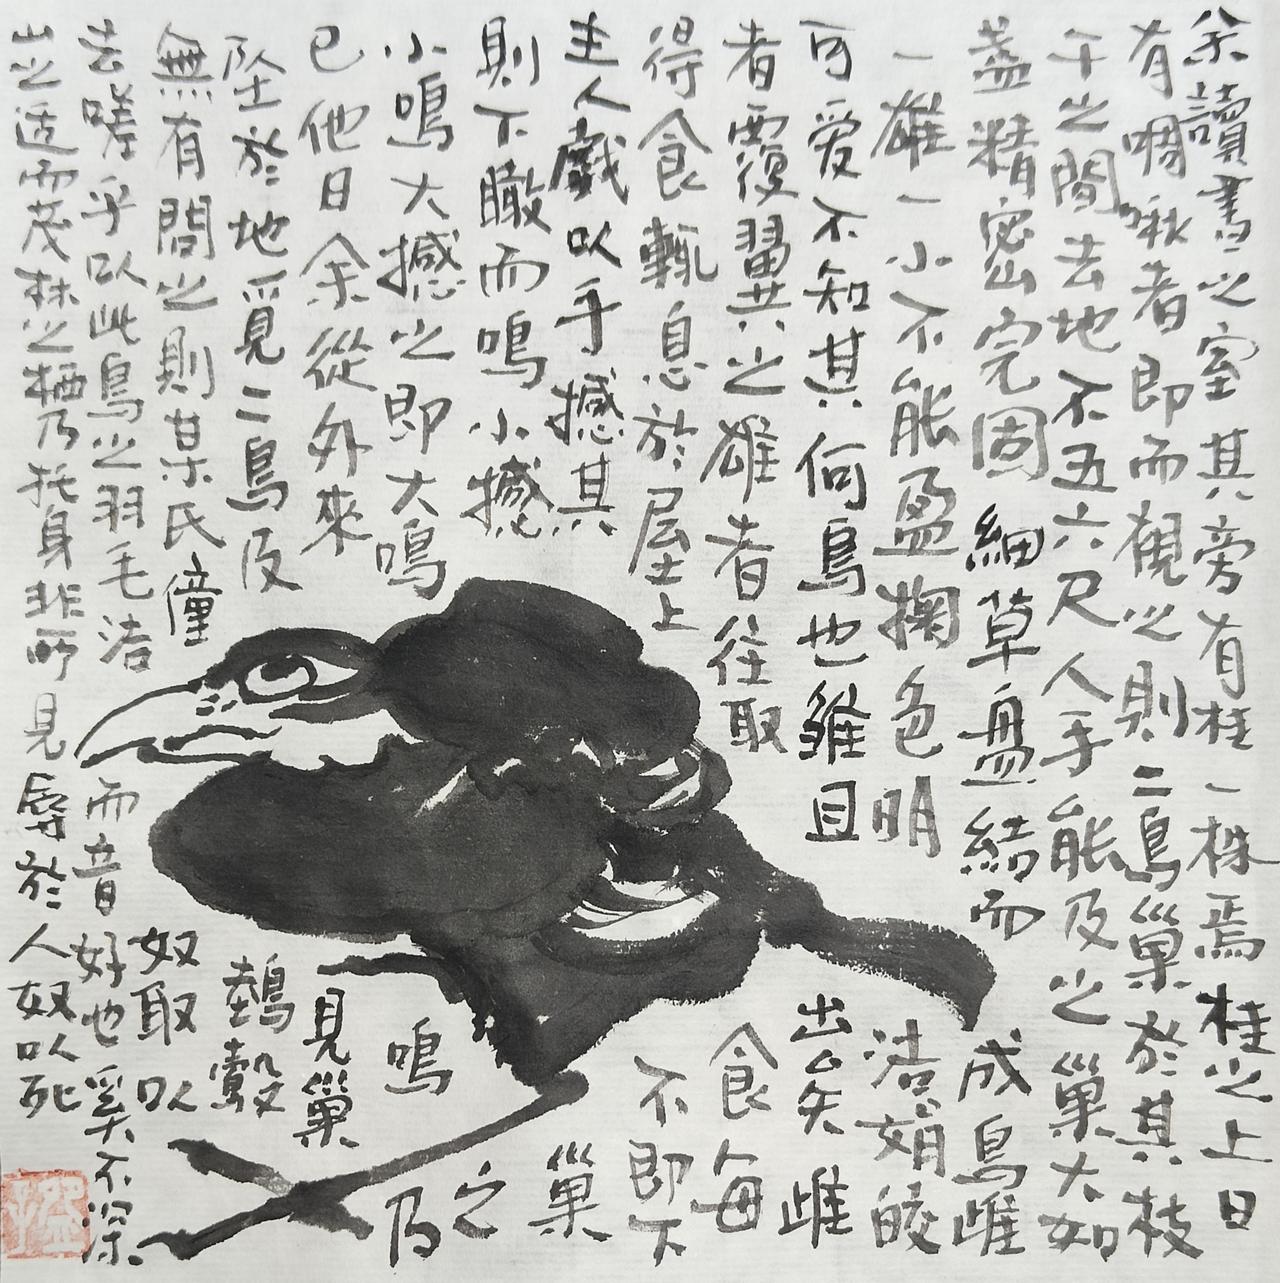 余讀書之室其旁有桂一株焉桂之上日
有啁啾者即而觀之則二鳥巢於其枝
干之間去地不五六尺人手能及之巢大如
盞精密完固細草盤結而成鳥雌
一雄一小不能盈掬色明洁娟皎
可爱不知其何鳥也雛且出矣雌
者覆翼之雄者往取食每
得食輒息於屋上不即下
主人戲以手撼其巢
則下瞰而鳴小撼之
小鳴大撼之即大鳴鳴乃
已他日余從外來見巢
墜於地覓二鳥及鷇
無有間之則某氏僮奴取以
去嗟乎以此鳥之羽毛洁而音好也奚不深
山之适而茂林之栖乃托身非所見辱於人奴以死